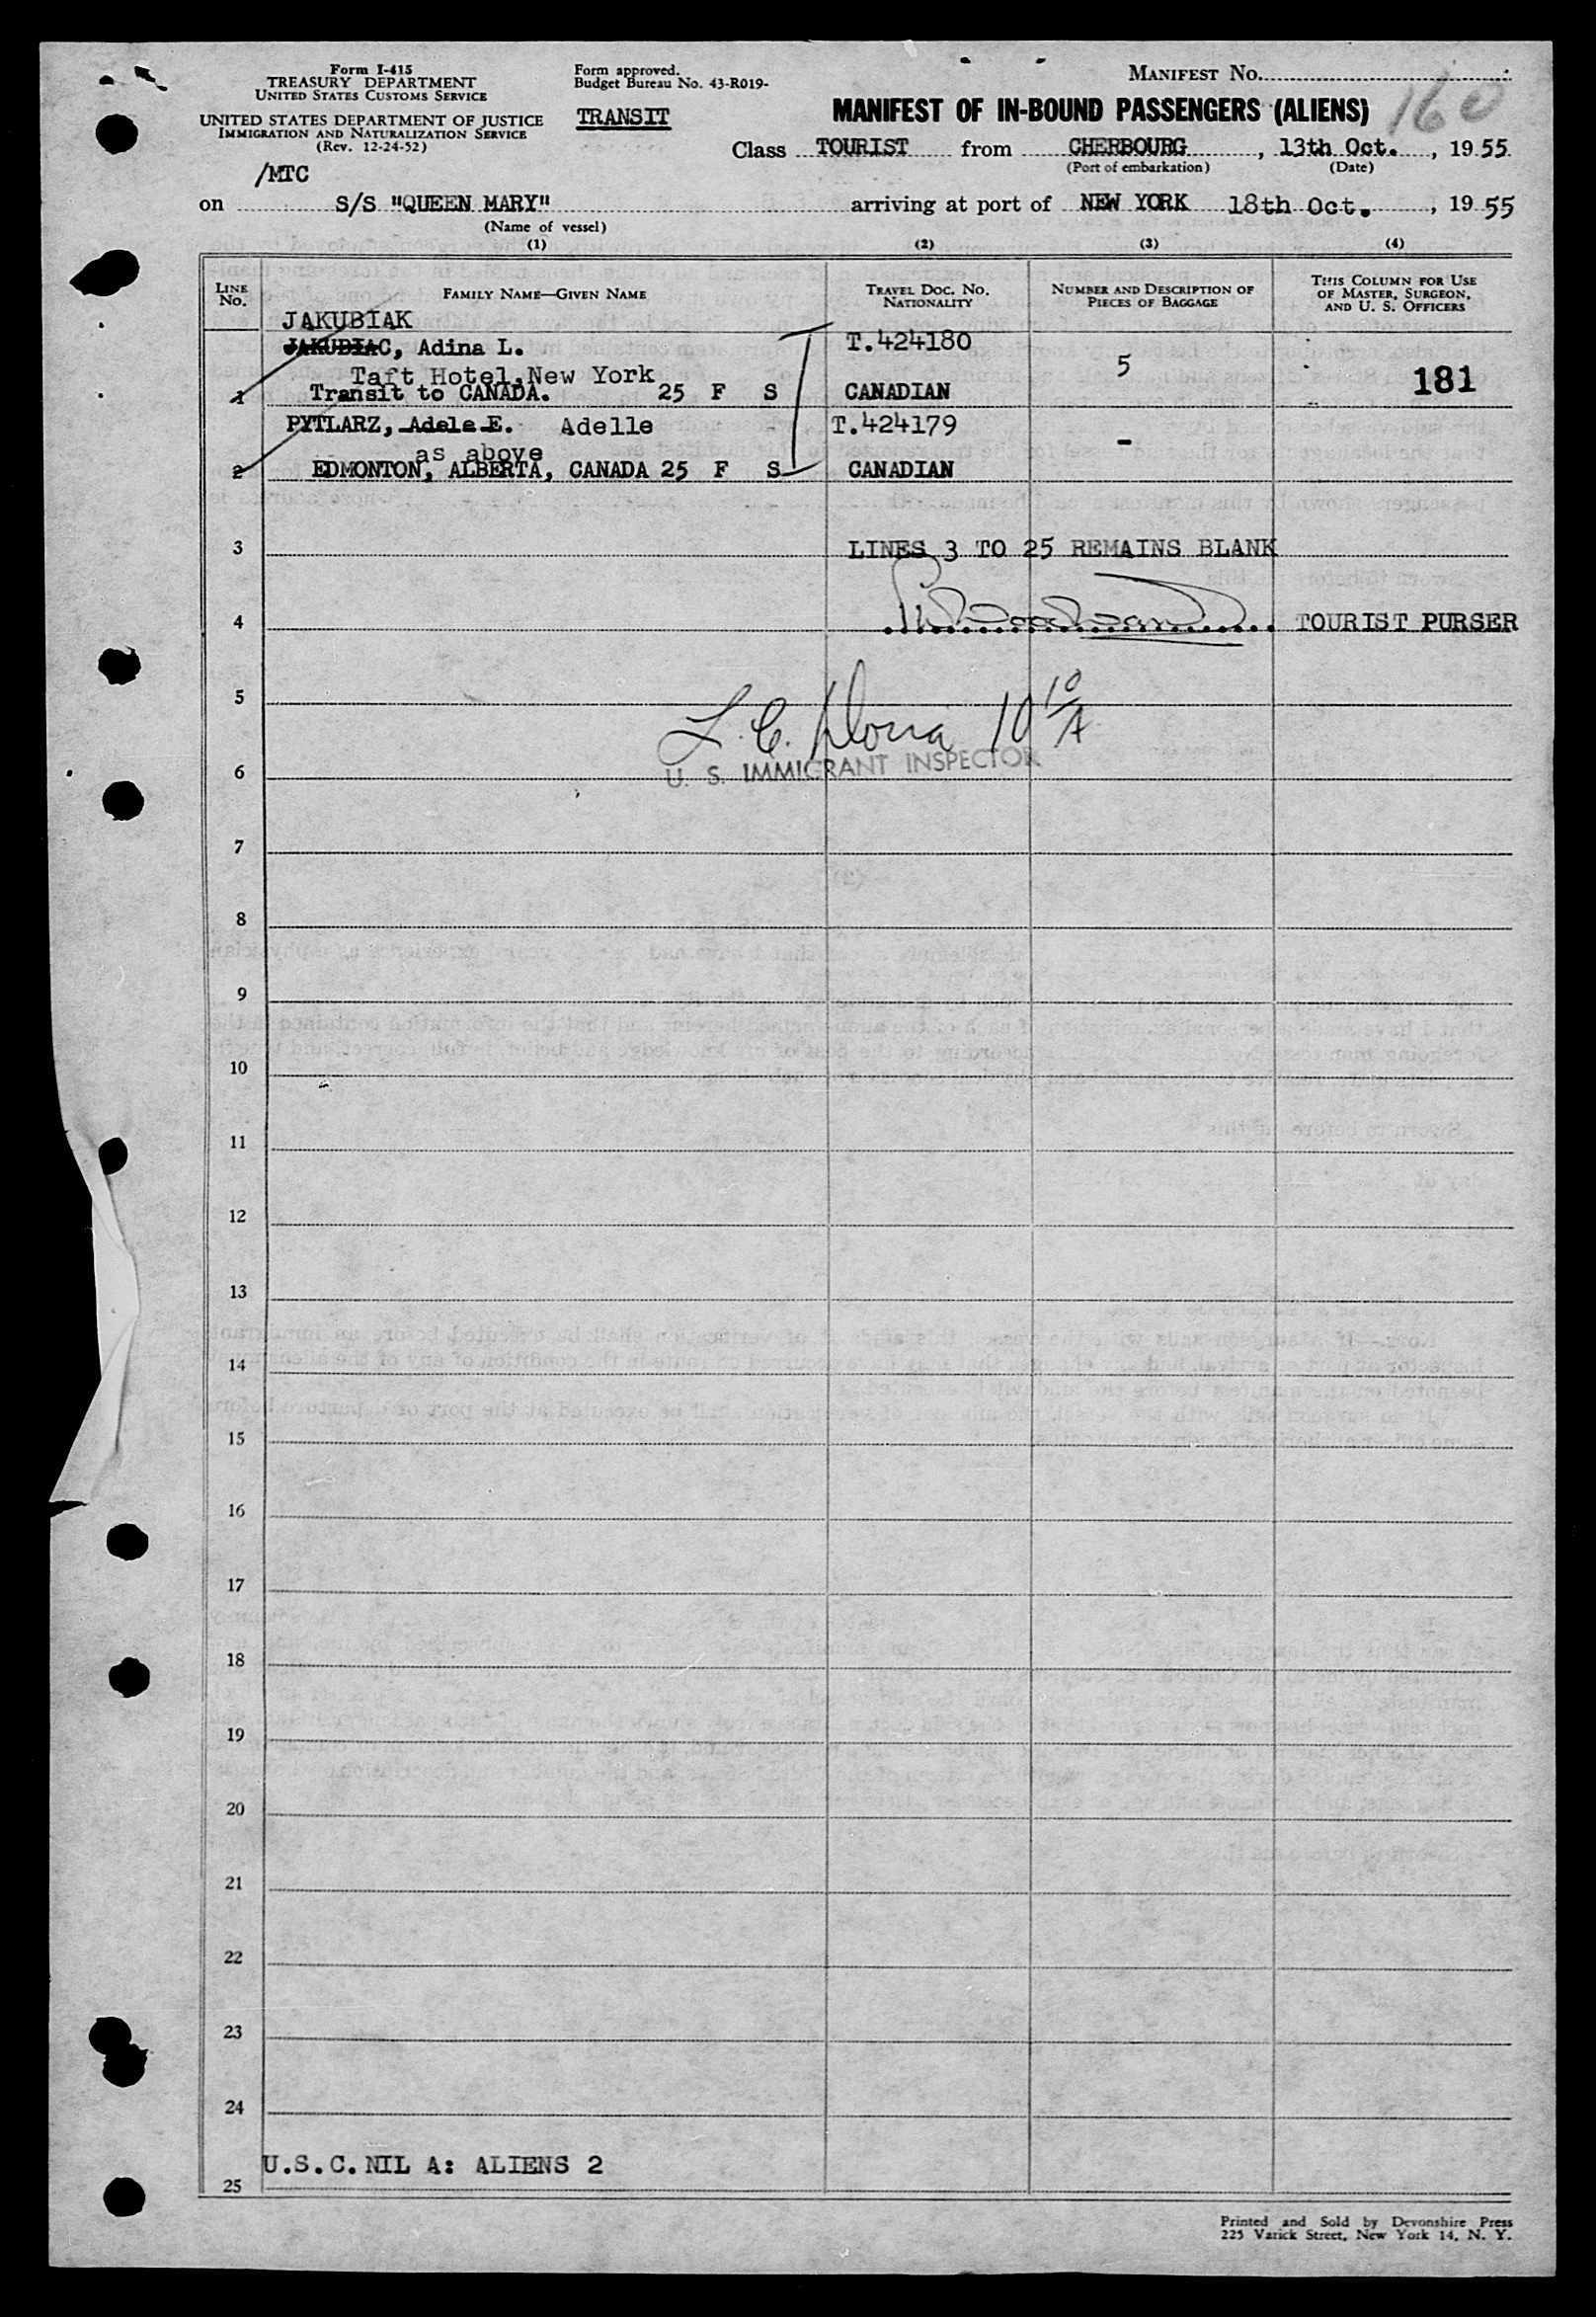 Form I-415
TREASURY DEPARTMENT
UNITED STATES CUSTOMS SERVICE
UNITED STATES DEPARTMENT OF JUSTICE
IMMIGRATION AND NATURALIZATION SERVICE
(Rev. 12-24-52)
Form approved.
Budget Bureau No. 43-R019-
TRANSIT
MANIFEST NO.
160
MANIFEST OF IN-BOUND PASSENGERS (ALIENS)
Class TOURIST from CHERBOURG, 13th Oct., 1955.
(Port of embarkation) (Date)
/MTC
on S/S "QUEEN MARY" arriving at port of NEW YORK 18th Oct., 1955
(Name of vessel)
(1) (2) (3) (4)
LINE NO.
FAMILY NAME—GIVEN NAME
TRAVEL DOC. NO. NATIONALITY
NUMBER AND DESCRIPTION OF PIECES OF BAGGAGE
THIS COLUMN FOR USE OF MASTER, SURGEON, AND U. S. OFFICERS
JAKUBIAK
JAKUBIAC, Adina L. T.424180
Taft Hotel, New York 5
1 Transit to CANADA. 25 F S CANADIAN 181
PYTLARZ, Adele E. Adelle T.424179
as above -
2 EDMONTON, ALBERTA, CANADA 25 F S CANADIAN
3 LINES 3 TO 25 REMAINS BLANK
4 TOURIST PURSER
5
L. C. 10 10/A
U. S. IMMIGRANT INSPECTOR
6
7
8
9
10
11
12
13
14
15
16
17
18
19
20
21
22
23
24
U.S.C. NIL A: ALIENS 2
25
Printed and Sold by Devonshire Press
225 Varick Street, New York 14, N. Y.